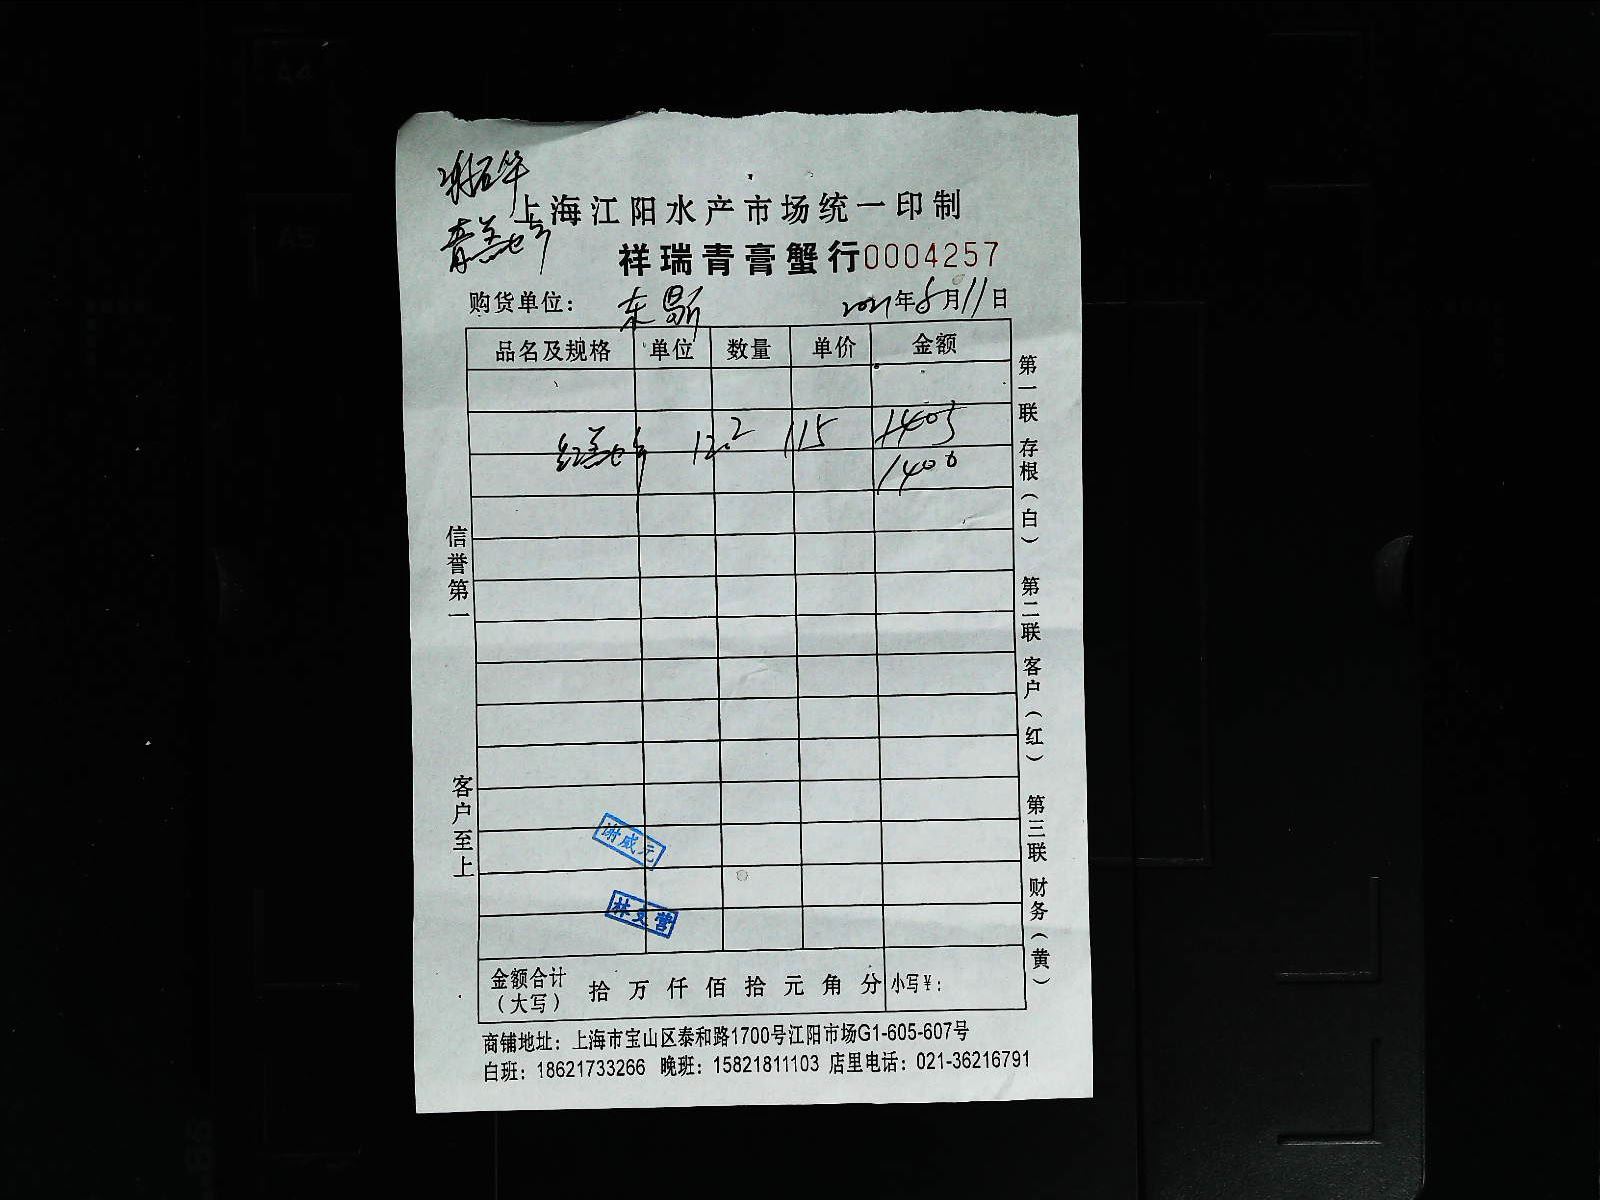 上海江阳水产市场统一印制
祥瑞青膏蟹行0004257
购货单位： 2021年8月11日
品名及规格 单位 数量 单价 金额
12.2 115 1403
1400
信誉第一
客户至上
第一联 存根（白） 第二联 客户（红） 第三联 财务（黄）
谢威元
林文营
金额合计（大写） 拾 万 仟 佰 拾 元 角 分 小写¥：
商铺地址：上海市宝山区泰和路1700号江阳市场G1-605-607号
白班：18621733266 晚班：15821811103 店里电话：021-36216791